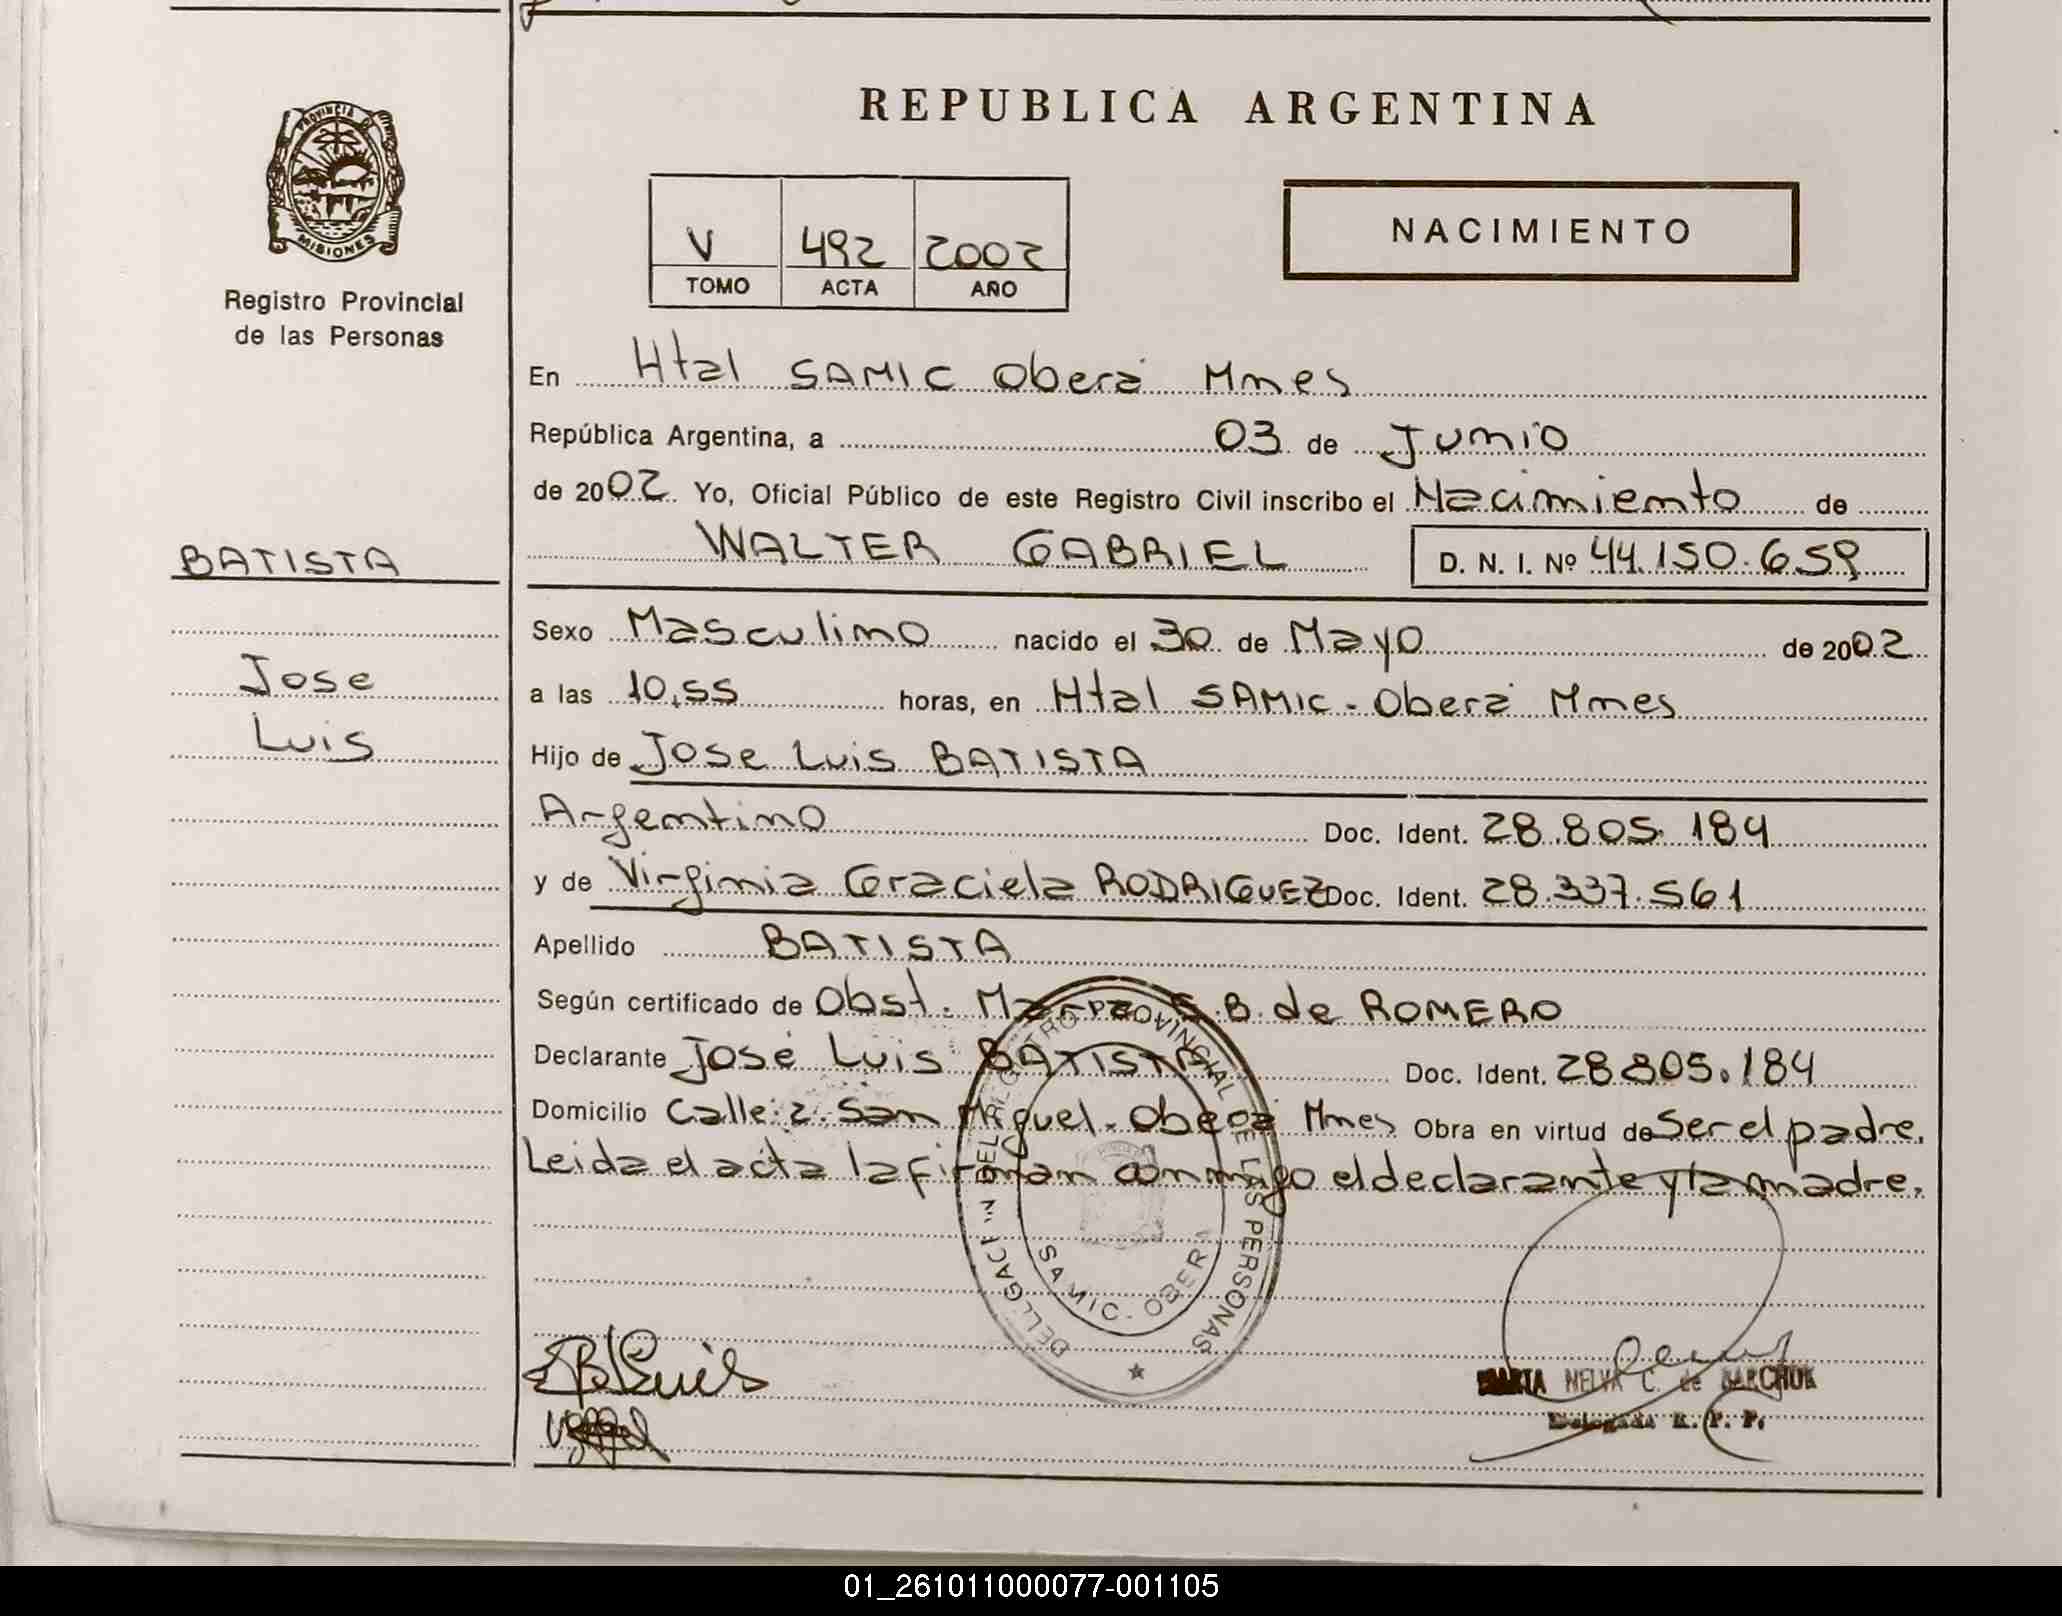 REPUBLICA ARGENTINA
PROVINCIA DE
MISIONES
Registro Provincial
de las Personas
V 492 2002
TOMO ACTA AÑO
NACIMIENTO
En Htal SAMIC Oberá Mnes
República Argentina, a 03 de Junio
de 2002 Yo, Oficial Público de este Registro Civil inscribo el Nacimiento de
BATISTA
WALTER GABRIEL D. N. I. Nº 44.150.659
Sexo Masculino nacido el 30 de Mayo de 2002
Jose
a las 10,55 horas, en Htal SAMIC - Oberá Mnes
Luis
Hijo de Jose Luis BATISTA
Argentino Doc. Ident. 28.805.184
y de Virginia Graciela RODRIGUEZ Doc. Ident. 28.337.561
Apellido BATISTA
Según certificado de Obst. S.B. de ROMERO
Declarante José Luis BATISTA Doc. Ident. 28.805.184
Domicilio Calle 2. San Miguel. Oberá Mnes Obra en virtud de Ser el padre.
Leida el acta la firman conmigo el declarante y la madre.
DEL REGISTRO PROVINCIAL DE LAS PERSONAS
SAMIC - OBERA
MARTA NELVA C. de SARCHUK
Delegada R. P. P.
01_261011000077-001105